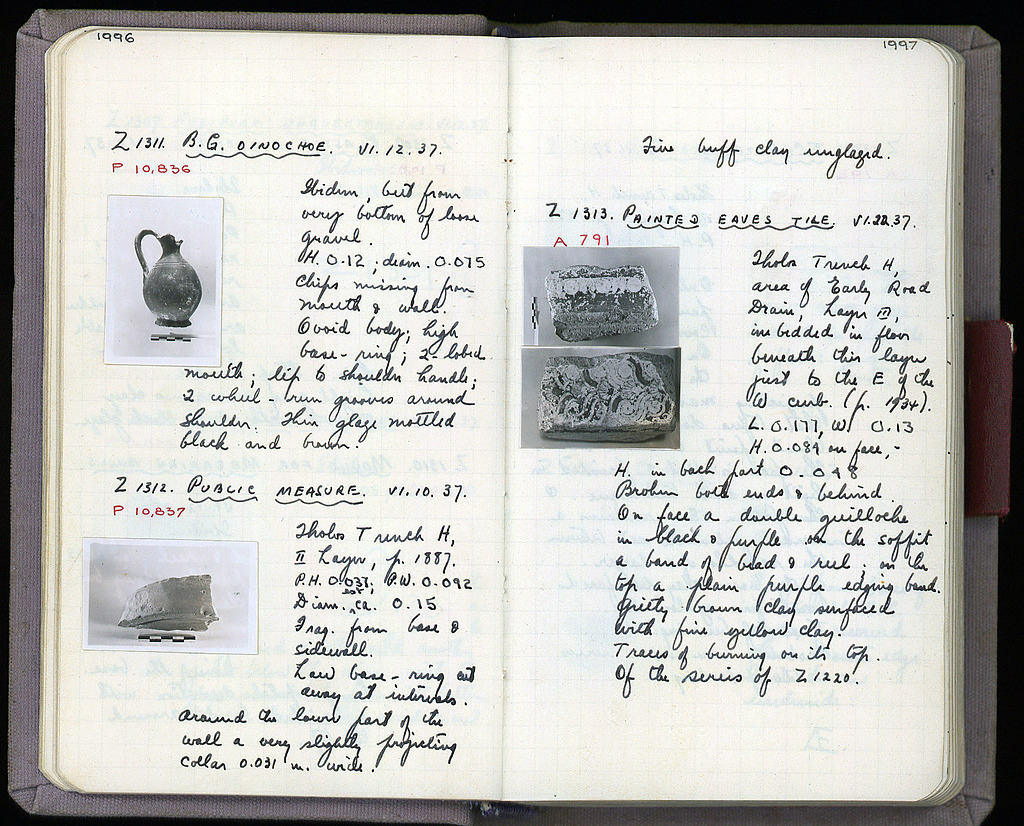 1996
Z 1311. B.G. OINOCHOE. VI.12.37.
P 10,836
Ibidem, but from
very bottom of loose
gravel.
H. 0.12; diam. 0.075
Chips missing from
mouth & wall.
Ovoid body; high
base-ring; 2-lobed
mouth; lip to shoulder handle;
2 wheel-run grooves around
shoulder. Thin glaze mottled
black and brown.
Z 1312. PUBLIC MEASURE. VI.10.37.
P 10,837
Tholos Trench H,
II Layer, p. 1887.
P.H. 0.037, P.W. 0.092
Diam. est. ca. 0.15
Frag. from base &
sidewall.
Low base-ring cut
away at intervals.
Around the lower part of the
wall a very slightly projecting
collar 0.031 m. wide.
1997
Fine buff clay unglazed.
Z 1313. PAINTED EAVES TILE. VI.22.37.
A 791
Tholos Trench H,
area of Early Road
Drain, Layer II,
imbedded in floor
beneath this layer
just to the E of the
W curb. (p. 1934).
L. 0.177, W. 0.13
H. 0.084 on face,-
H. in back part 0.048
Broken both ends & behind.
On face a double guilloche
in black & purple on the soffit
a band of bead & reel; on the
top a plain purple edging band.
Gritty brown clay surfaced
with fine yellow clay.
Traces of burning on its top.
Of the sereis of Z 1220.